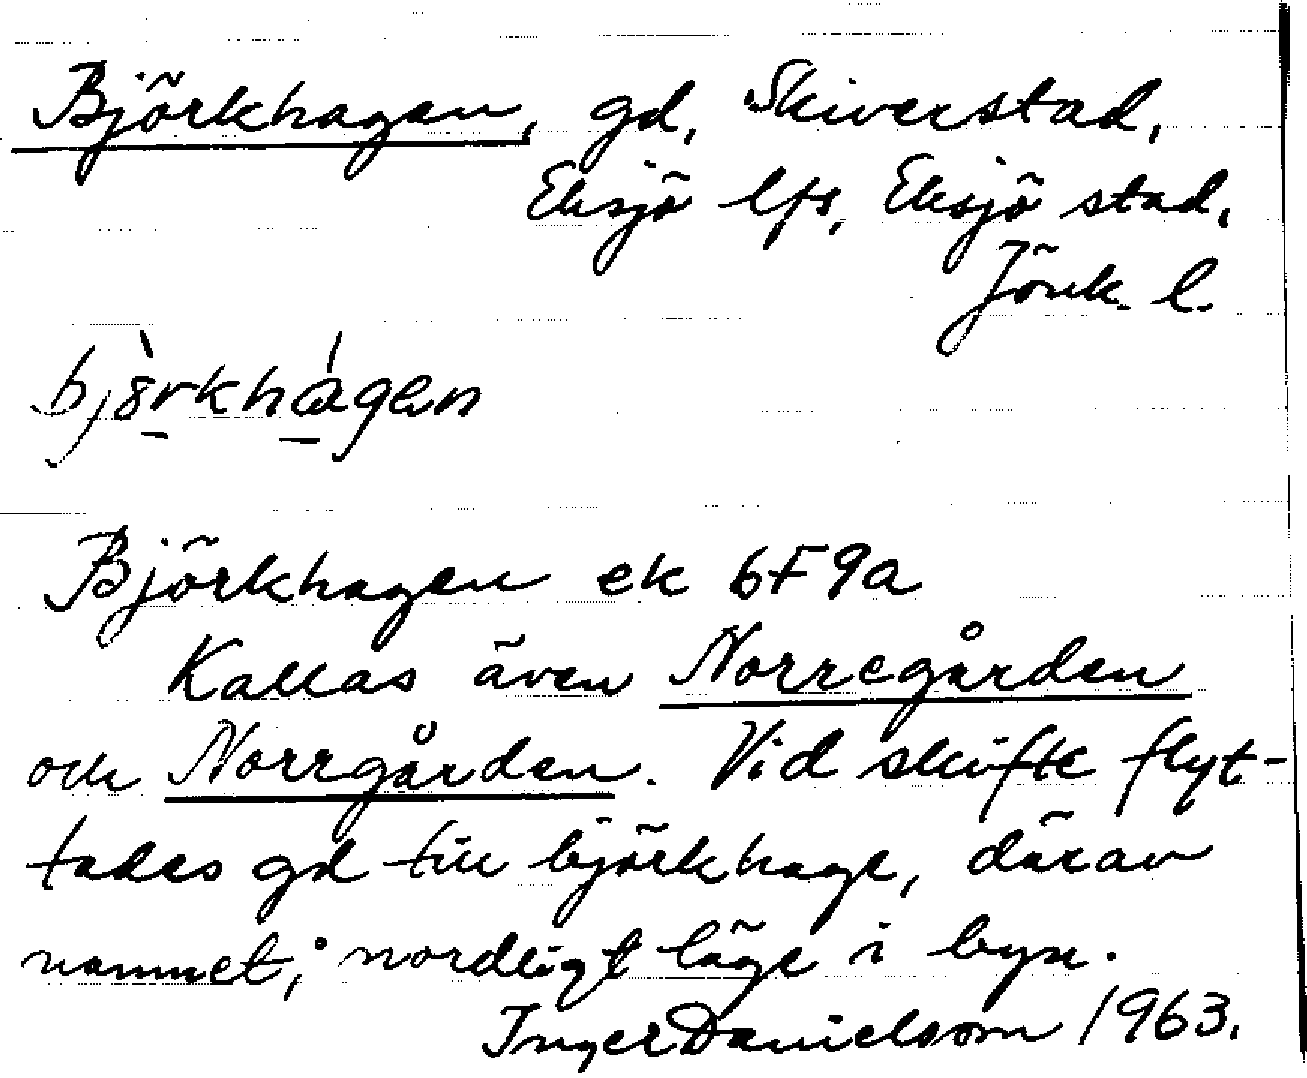 Björkhagen, gd, Skiverstad,
Eksjö lfs, Eksjö stad,
Jönk. l.
bjö̀rkhágen
Björkhagen ek 6F9a
Kallas även Norregården
och Norrgården. Vid skifte flyt-
tades gd till björkhage, därav
namnet; nordligt läge i byn.
Inger Danielsson 1963.